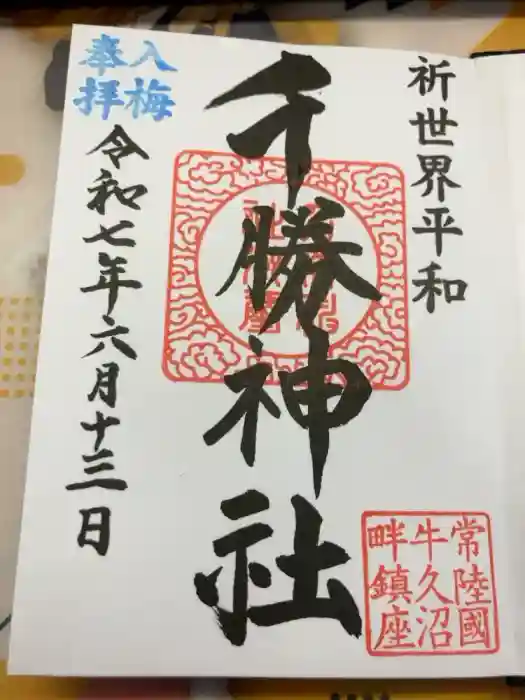 祈世界平和
千勝神社
常陸國
牛久沼
畔鎮座
入梅
奉拝
令和七年六月十三日